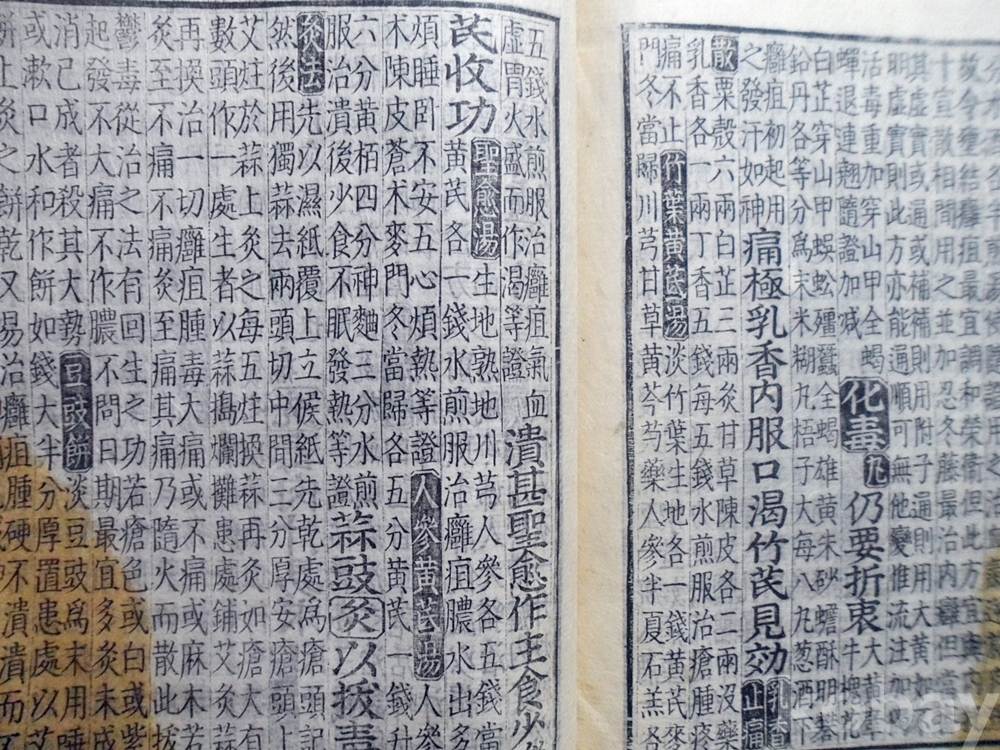 故令瘇結癰疽最宜調和榮衛但此方宜
十宣散相間用之並加忍冬藤最治內癰但
其虛實或通或補則用附子通則用大黃如
明虛實則此方亦能通順可無他變惟流注
活毒重加穿山甲全蝎
蟬退連翹隨證加減
化毒丸仍要折衷
大黃牽牛槐花
白芷穿山甲蜈蚣殭蠶全蝎雄黃朱砂蟾酥明礬
鉛丹各等分爲末米糊丸梧子大每八九丸葱酒下
癰疽初起用
之發汗如神
痛極乳香內服口渴竹芪見効
乳香
止痛
散粟殼六兩白芷三兩炙甘草陳皮各二兩沒藥
乳香各一兩丁香五錢每五錢水煎服治瘡腫疼
痛不止竹葉黃芪湯淡竹葉生地各一錢黃芪
門冬當歸川芎甘草黃芩芍藥人參半夏石羔各
五錢水煎服治癰疽氣血
虛胃火盛而作渴等證
潰甚聖愈作主食少
芪收功
聖愈湯生地熟地川芎人參各五錢當
黃芪各一錢水煎服治癰疽膿水出多
煩睡臥不安五心煩熱等證人參黃芪湯人參
术陳皮蒼术麥門冬當歸各五分黃芪一錢升
六分黃栢四分神麯三分水煎
服治潰後少食不眠發熱等證
蒜豉灸以拔毒
灸法先以濕紙覆上立候紙先乾處爲瘡頭記
然後用獨蒜去兩頭切中間三分厚安瘡頭上
艾炷於蒜上灸之每五炷換蒜再灸如瘡大有
數頭作一處生者以蒜搗爛攤患處鋪艾灸蒜
再換治一切癰疽腫毒大痛或不痛或麻木若
至不痛不痛灸至痛其痛乃隨火而散此拔
鬱毒從治之法有回生之功若瘡色或白或紫
起發不大痛不作膿不問日期最宜多灸未成
消已成者殺其大勢豆豉餅淡豆豉爲末用唾
或漱口水和作餅如錢大半分厚置患處以艾
餅上灸之餅乾又易治癰疽腫硬不潰潰而不